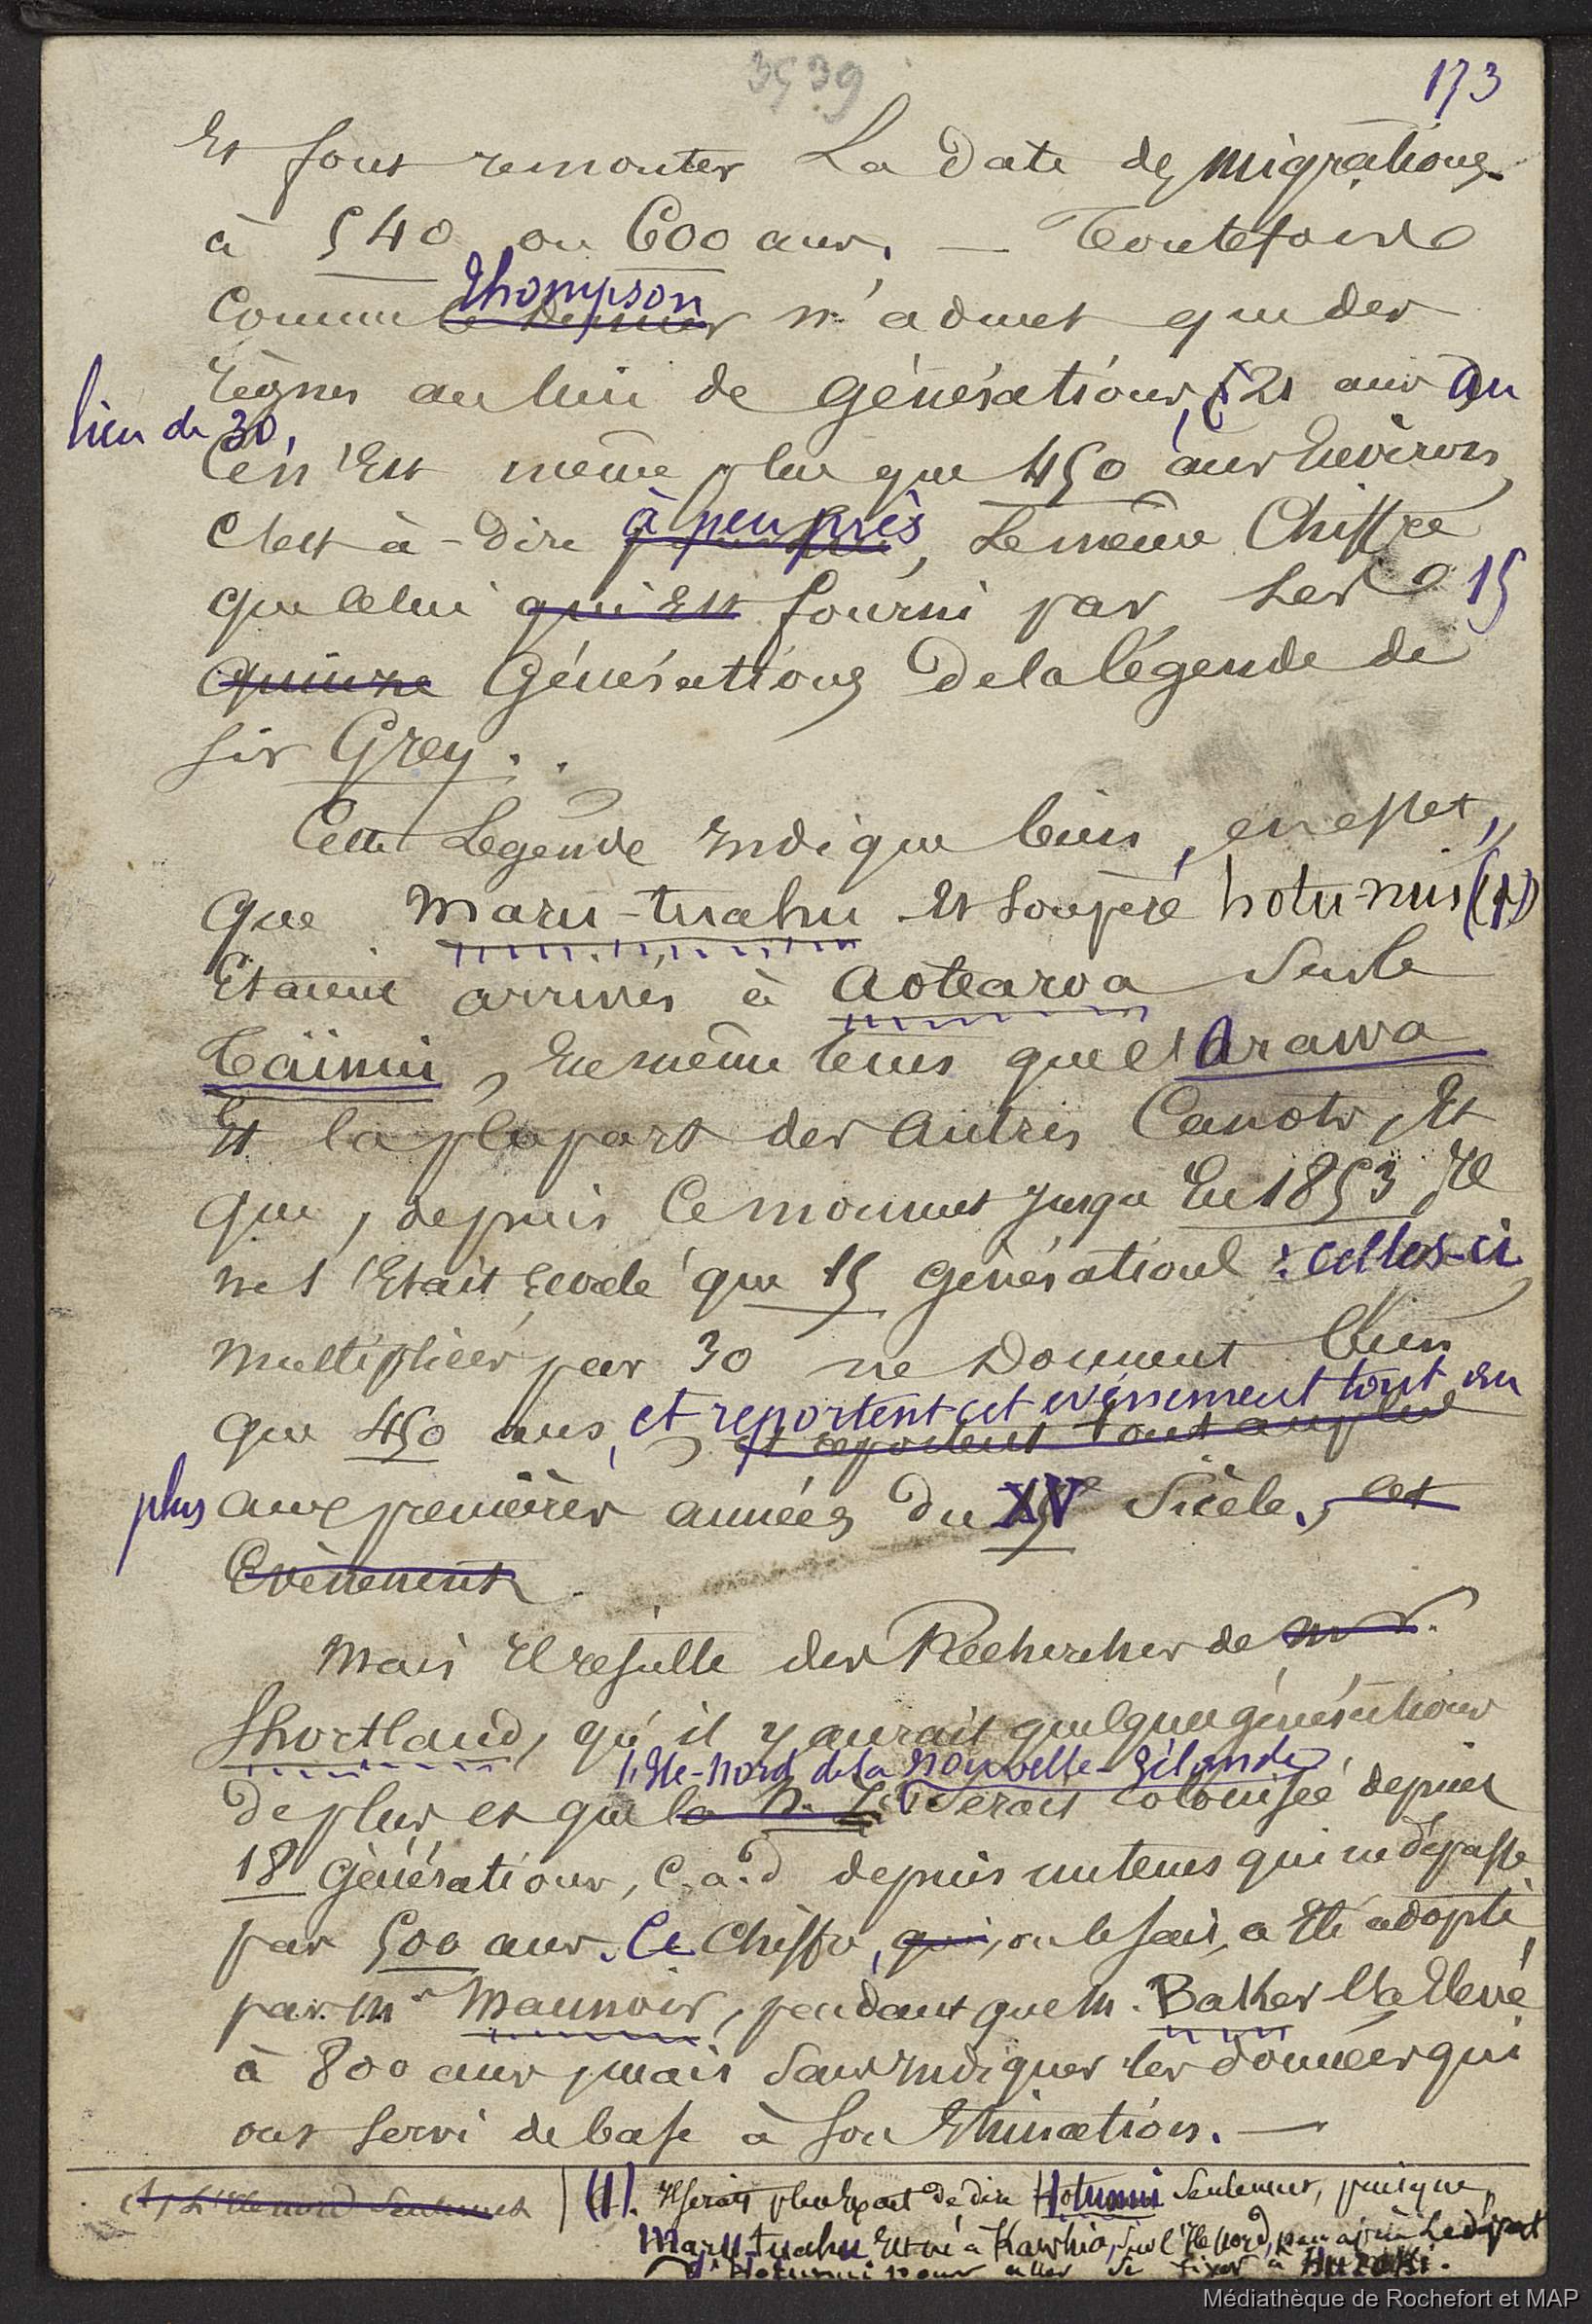 3539
173
Et font remonter la date des migrations
à 540 ou 600 ans. — Toutefois
comme le dernier Thompson n'admet que des
règnes au lieu de générations, (21 ans au
lieu de 30,
Ce n'est même plus que 450 ans environ,
c'est-à-dire à peu près, le même chiffre
que celui qui est fourni par les 15
quinze générations de la légende de
Sir Grey.
Cette légende indique bien, en effet,
que Maru-tuahu et son père hotu-nui (1)
étaient arrivés à Aotearoa sur le
Taïnui, en même tems que l'Arawa
et la plupart des autres canots, et
que, depuis ce moment jusqu'en 1853, il
ne s'était écoulé que 15 générations : celles-ci,
multipliées par 30 ne donnent bien
que 450 ans, et reportent cet événement tout au
et reportent tout au plus
plus aux premières années du XV siècle, cet
Evènement.
Mais il résulte des Recherches de Mr.
Shortland, qu'il y aurait quelques générations
l'Ile-Nord de la Nouvelle-Zélande
de plus et que la N. Z. serait colonisée depuis
18 générations, c.a.d depuis un tems qui ne dépasse
pas 500 ans. Ce chiffre, qui, on le sait, a été adopté
par Mr Maunoir, pendant que M. Baker l'a élevé
à 800 ans, mais sans indiquer les données qui
ont servi de base à son estimation. —
(1) L'Ile nord seulement
(1). Il serait plus exact de dire Hotunui seulement, puisque
Maru tuahu est né à Kawhia, sur l'Ile Nord, peu après le départ
d'Hotunui pour aller se fixer à Hauraki.
Médiathèque de Rochefort et MAP